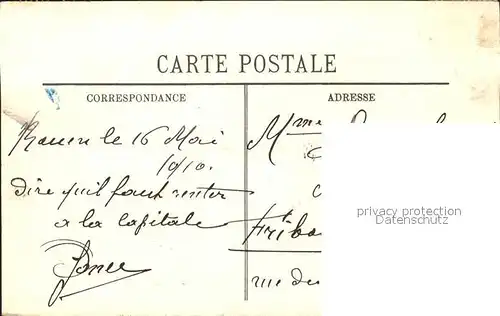 CARTE POSTALE
CORRESPONDANCE
ADRESSE
Rouen le 16 Mai
1910.
dire qu'il faut rentrer
a la capitale
Mme
Fribo
rue de
privacy protection
Datenschutz